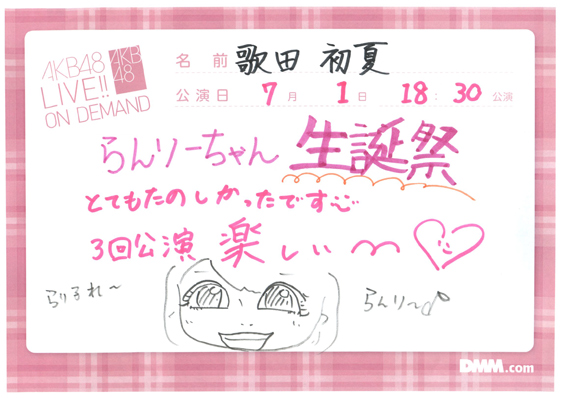 AKB48
LIVE!!
ON DEMAND
AKB
48
名 前 歌田 初夏
公演日 7月 1日 18:30公演
らんりーちゃん 生誕祭
とてもたのしかったです
3回公演 楽しい
らりるれ〜
らんり〜♪
DMM.com